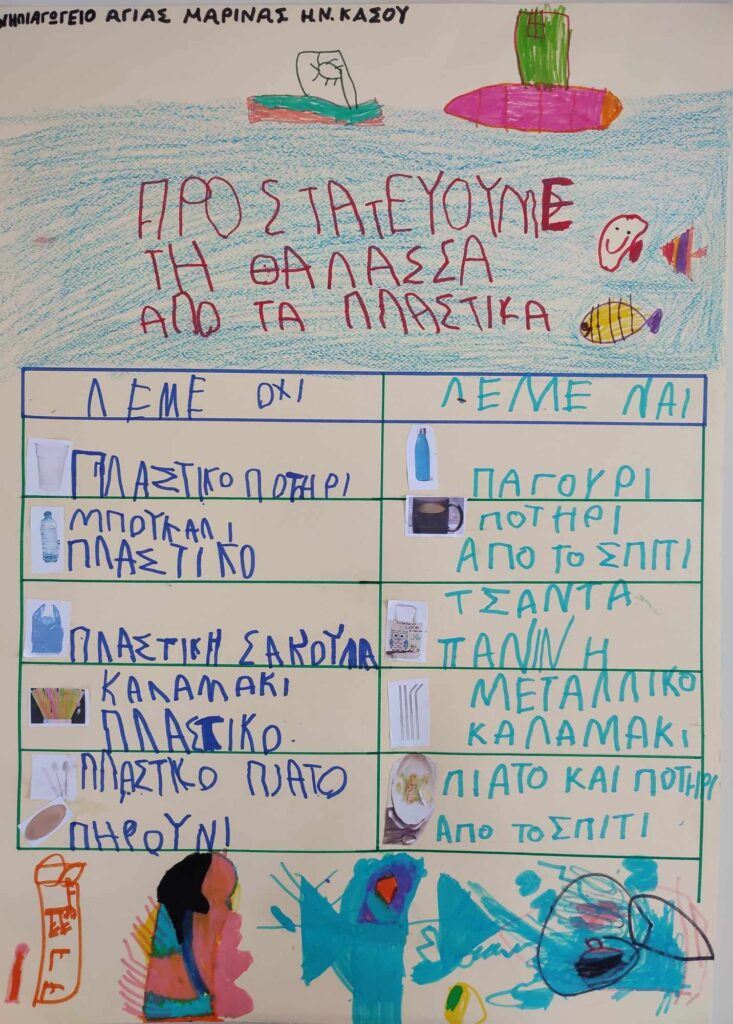 ΝΗΠΙΑΓΩΓΕΙΟ ΑΓΙΑΣ ΜΑΡΙΝΑΣ Η.Ν. ΚΑΣΟΥ
ΠΡΟΣΤΑΤΕΥΟΥΜΕ
ΤΗ ΘΑΛΑΣΣΑ
ΑΠΟ ΤΑ ΠΛΑΣΤΙΚΑ
ΛΕΜΕ ΟΧΙ
ΛΕΜΕ ΝΑΙ
ΠΛΑΣΤΙΚΟ ΠΟΤΗΡΙ
ΠΑΓΟΥΡΙ
ΜΠΟΥΚΑΛΙ
ΠΛΑΣΤΙΚΟ
ΠΟΤΗΡΙ
ΑΠΟ ΤΟ ΣΠΙΤΙ
ΠΛΑΣΤΙΚΗ ΣΑΚΟΥΛΑ
ΤΣΑΝΤΑ
ΠΑΝΙΝΗ
ΚΑΛΑΜΑΚΙ
ΠΛΑΣΤΙΚΟ
ΜΕΤΑΛΛΙΚΟ
ΚΑΛΑΜΑΚΙ
ΠΛΑΣΤΚΟ ΠΙΑΤΟ
ΠΗΡΟΥΝΙ
ΠΙΑΤΟ ΚΑΙ ΠΟΤΗΡΙ
ΑΠΟ ΤΟ ΣΠΙΤΙ